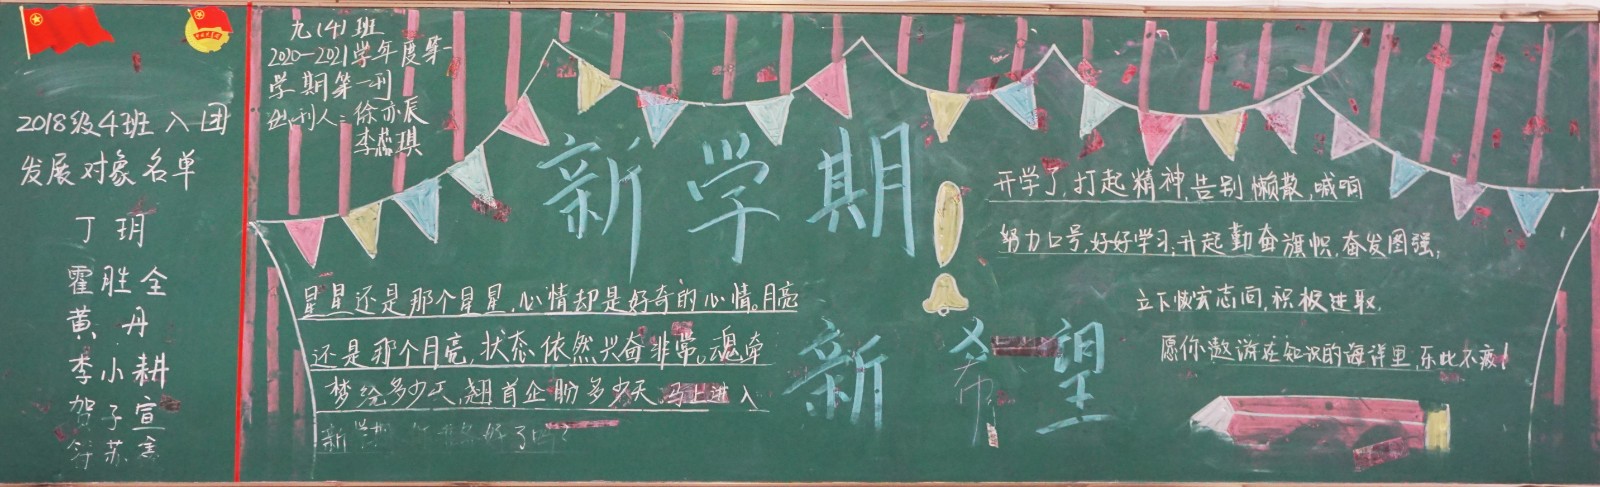 2018级4班入团
发展对象名单
丁玥
霍胜全
黄丹
李小耕
贺子宣
苏寒
九(4)班
2020-2021学年度第一
学期第一刊
出刊人：徐亦辰
李蕊琪
新学期！
新希望
星星还是那个星星,心情却是好奇的心情。月亮
还是那个月亮,状态依然兴奋非常。魂牵
梦绘多少天,翘首企盼多少天。马上进入
新学期 好了吗？
开学了,打起精神,告别懒散,喊响
努力口号,好好学习,升起勤奋旗帜,奋发图强;
立下恢宏志向,积极进取.
愿你遨游在知识的海洋里,乐此不疲!